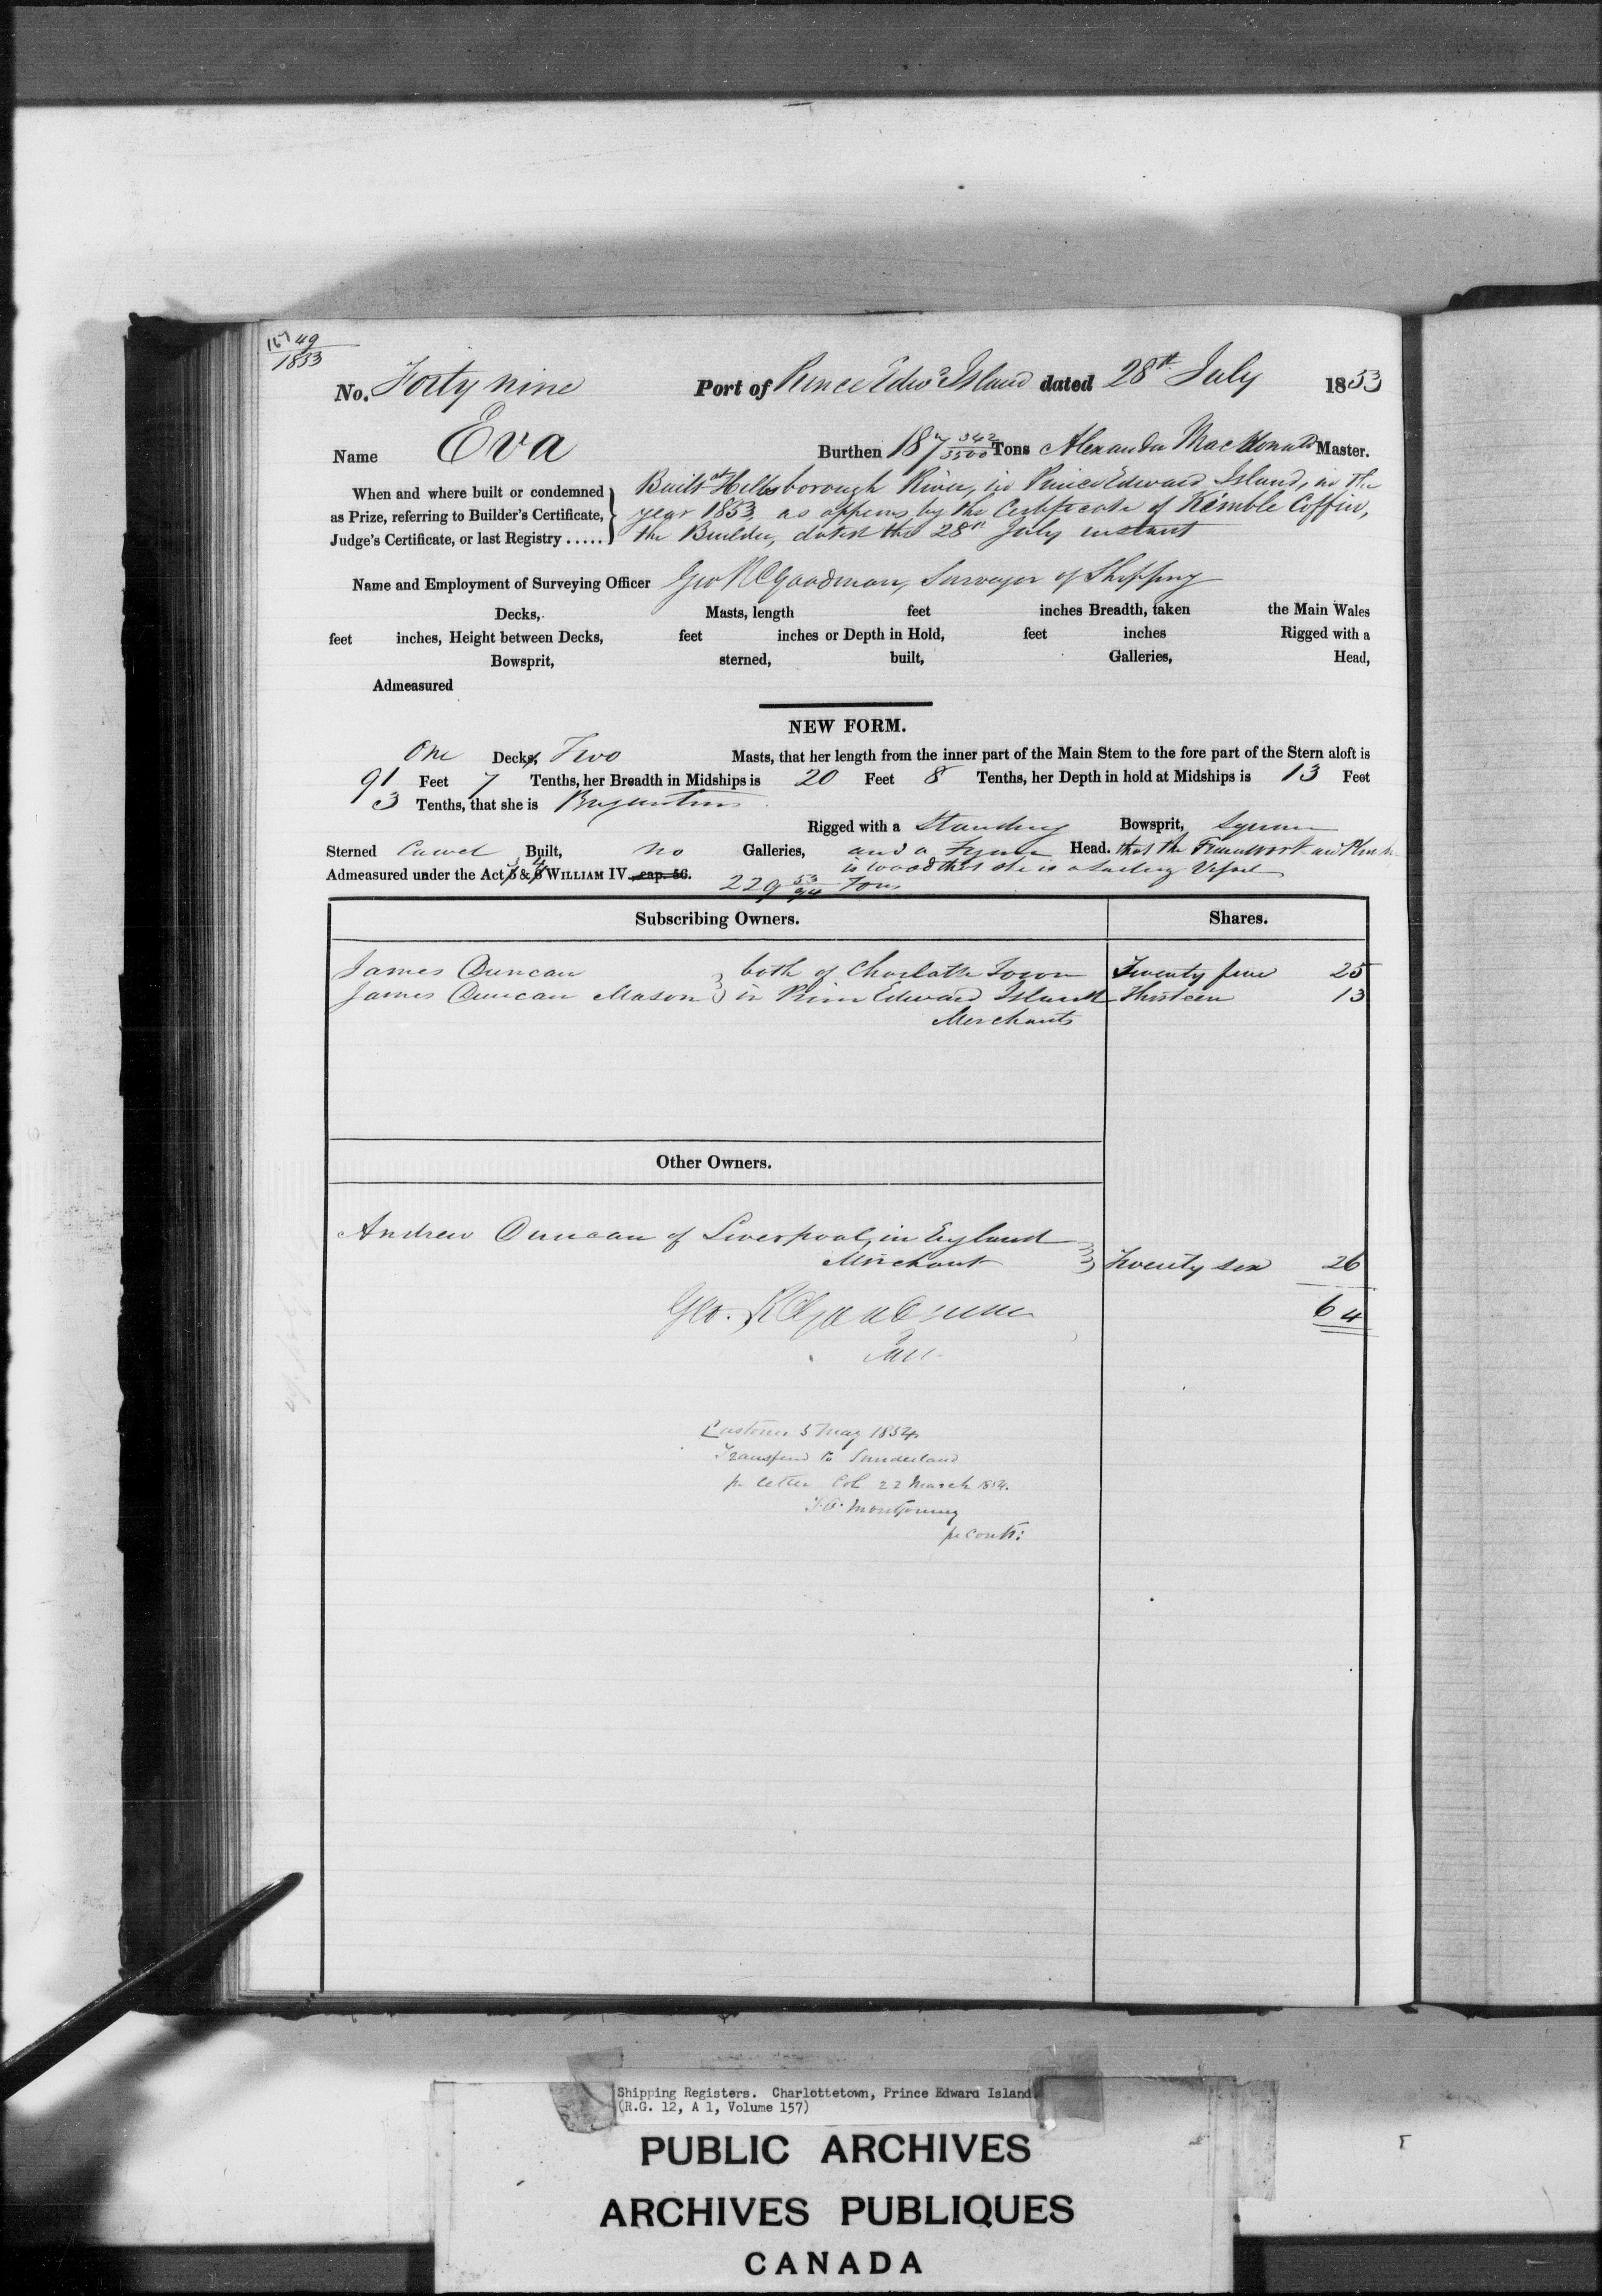 167 49
1853
No. Forty nine Port of Prince Edwd Island dated 28th July 1853
Name Eva Burthen 187 342/3500 Tons Alexander MacDonald Master.
When and where built or condemned as Prize, referring to Builder's Certificate, Judge's Certificate, or last Registry .....
Built at Hillsborough River, in Prince Edward Island, in the
year 1853, as appears by the Certificate of Kimble Coffin,
the Builder, dated the 28th July instant
Name and Employment of Surveying Officer Geo R Goodman, Surveyor of Shipping
Decks, Masts, length feet inches Breadth, taken the Main Wales
feet inches, Height between Decks, feet inches or Depth in Hold, feet inches Rigged with a
Bowsprit, sterned, built, Galleries, Head,
Admeasured
NEW FORM.
One Decks, Two Masts, that her length from the inner part of the Main Stem to the fore part of the Stern aloft is
91 Feet 7 Tenths, her Breadth in Midships is 20 Feet 8 Tenths, her Depth in hold at Midships is 13 Feet
3 Tenths, that she is Brigantine
Rigged with a Standing Bowsprit, Square
Sterned Carvel Built, no Galleries, and a Figure Head. that the Framework and Plank
is wood that she is a Sailing Vessel
Admeasured under the Act 5 & 6 WILLIAM IV cap. 56. 229 53/94 Tons
Subscribing Owners. Shares.
James Duncan both of Charlotte Town Twenty five 25
James Duncan Mason in Prince Edward Island Thirteen 13
Merchants
Other Owners.
Andrew Duncan of Liverpool, in England
Merchant Twenty six 26
Geo. R Goodman 64
Customs 5 May 1854
Transferred to Sunderland
pr letter Col 22 March 1854.
Montgomery
pr Contr:
Shipping Registers. Charlottetown, Prince Edward Island
(R.G. 12, A 1, Volume 157)
PUBLIC ARCHIVES
ARCHIVES PUBLIQUES
CANADA